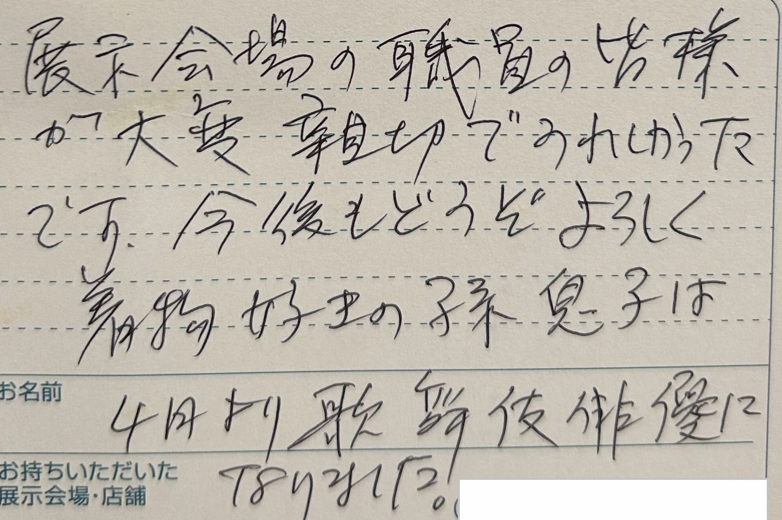 展示会場の職員の皆様
が大変親切でうれしかった
です。今後もどうぞよろしく
着物好きの孫息子は
お名前
4月より歌舞伎俳優に
お持ちいただいた
展示会場・店舗
なりました。